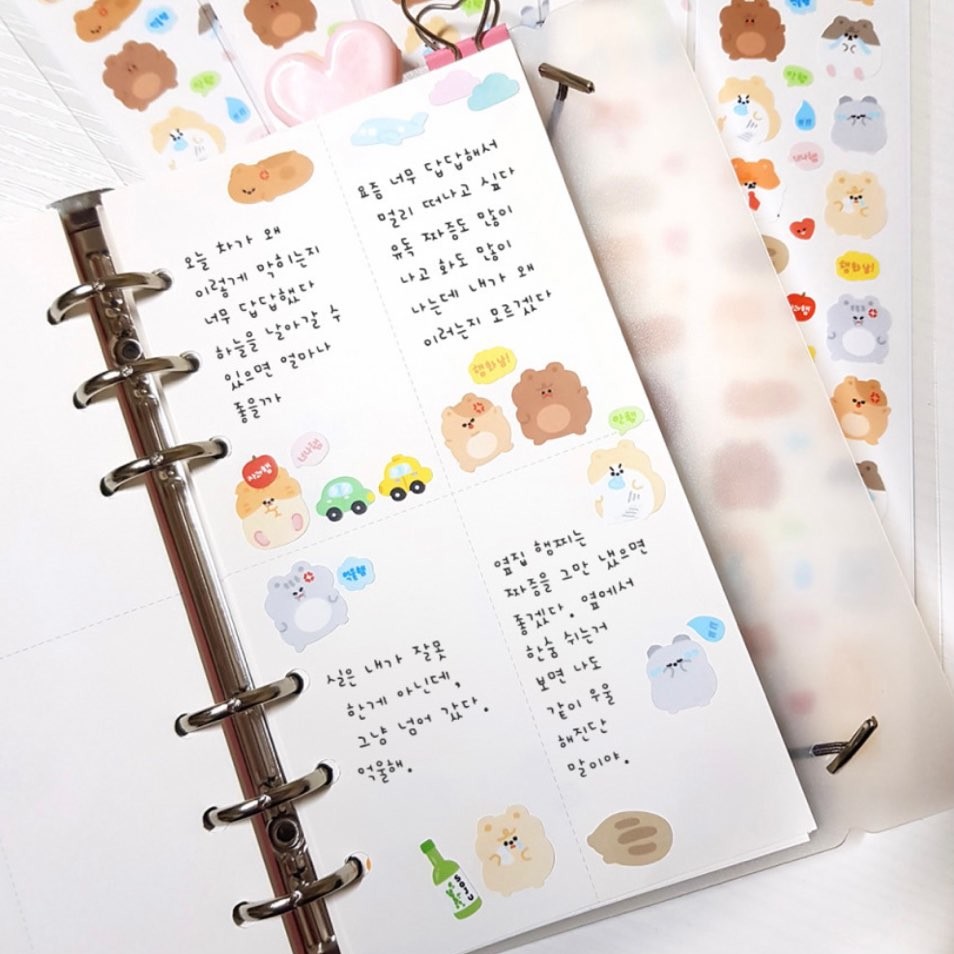 오늘 차가 왜
이렇게 막히는지
너무 답답했다
하늘을 날아갈 수
있으면 얼마나
좋을까
사과햄
요즘 너무 답답해서
멀리 떠나고 싶다
유독 짜증도 많이
나고 화도 많이
나는데 내가 왜
이러는지 모르겠다
햄화남!
안햄
억울햄
실은 내가 잘못
한게 아닌데,
그냥 넘어 갔다.
억울해.
SOJU
옆집 햄찌는
짜증을 그만 냈으면
좋겠다. 옆에서
한숨 쉬는거
보면 나도
같이 우울
해진단
말이야.
햄화남!
안햄